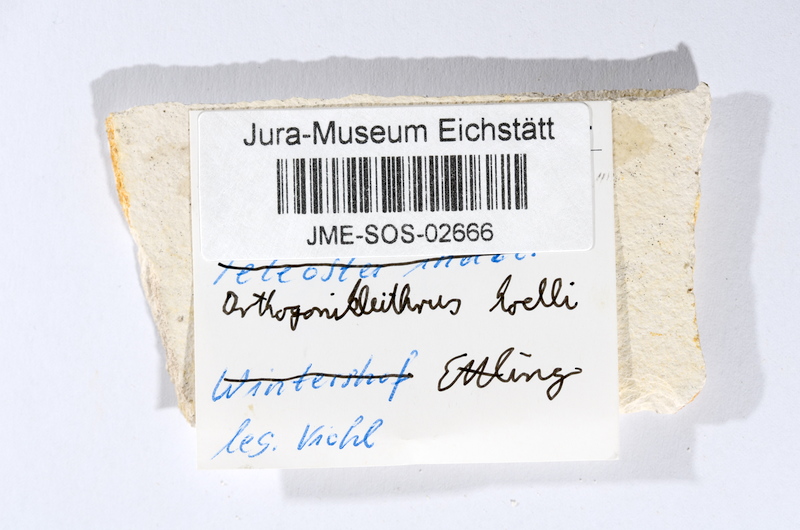 Jura-Museum Eichstätt
JME-SOS-02666
Teleostei indet.
Orthogonikleithrus hoelli
Wintershof Ettling
leg. Viohl